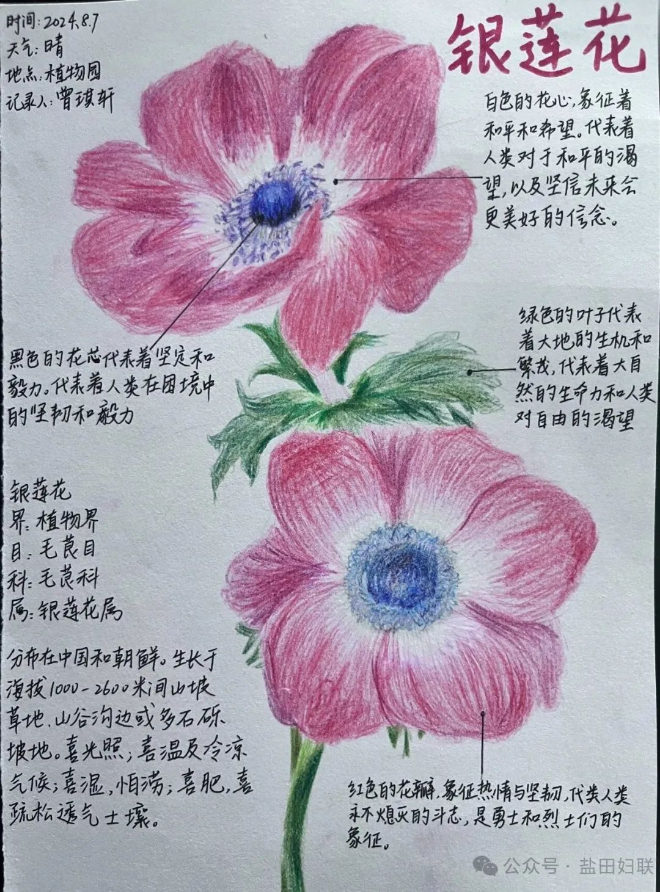 时间:2024.8.7
天气:晴
地点:植物园
记录人:曾琪轩
银莲花
白色的花心,象征着
和平和希望。代表着
人类对于和平的渴
望,以及坚信未来会
更美好的信念。
绿色的叶子代表
着大地的生机和
繁茂,代表着大自
然的生命力和人类
对自由的渴望
黑色的花芯代表着坚定和
毅力。代表着人类在困境中
的坚韧和毅力
银莲花
界:植物界
目:毛茛目
科:毛茛科
属:银莲花属
分布在中国和朝鲜。生长于
海拔1000-2600米间山坡
草地、山谷沟边或多石砾
坡地。喜光照;喜温及冷凉
气候;喜湿,怕涝;喜肥,喜
疏松透气土壤。
红色的花瓣,象征热情与坚韧,代类人类
永不熄灭的斗志,是勇士和烈士们的
象征。
公众号·盐田妇联